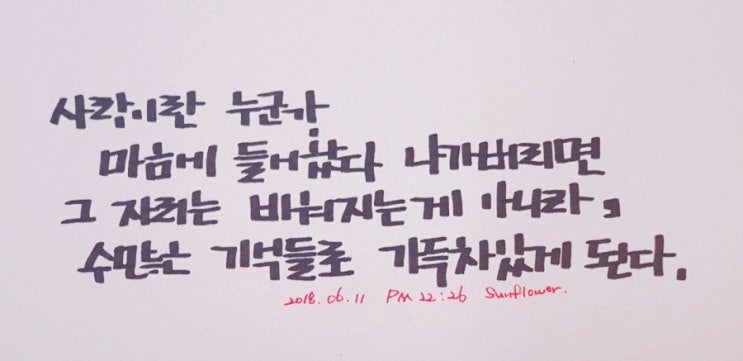 사람이란 누군가
마음에 들어왔다 나가버리면
그 자리는 비워지는게 아니라,
수많은 기억들로 가득차있게 된다.
2018. 06. 11 PM 12:26 Sunflower.